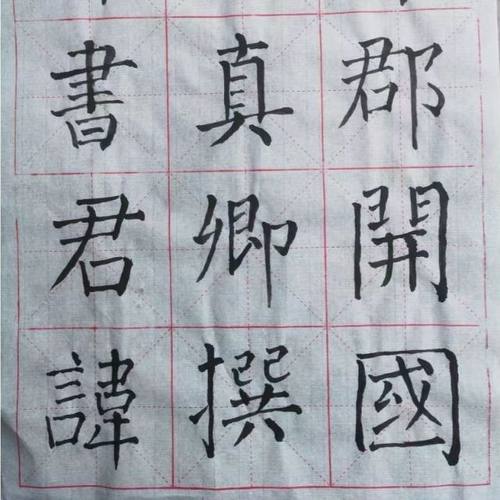 郡開國
真卿撰
書君諱